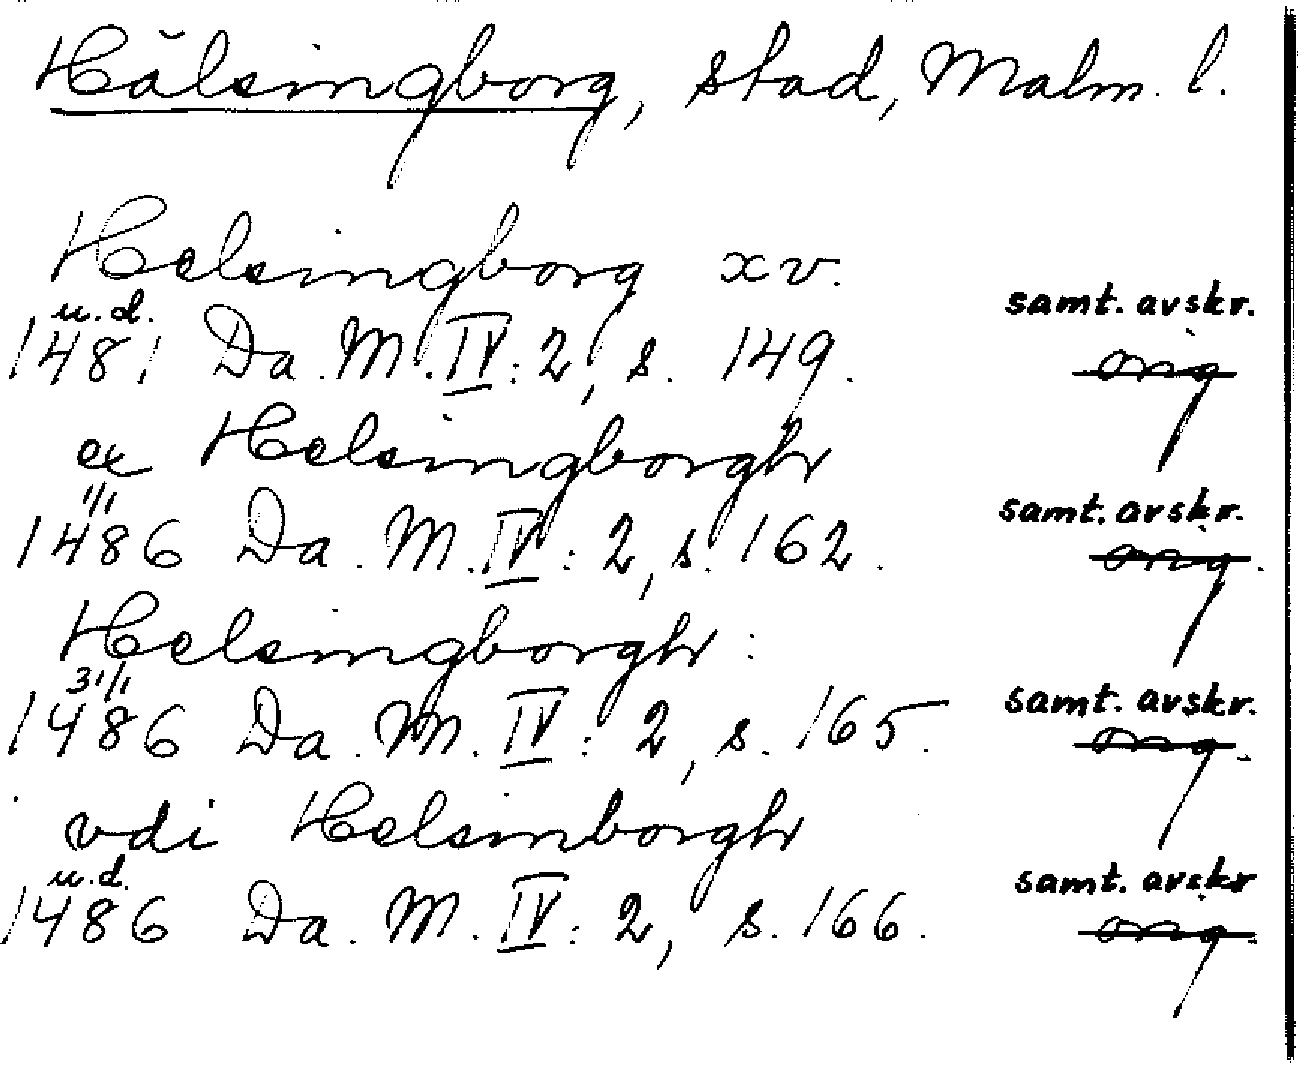 Hälsingborg, stad, Malm. l.
Helsingborg xv.
samt. avskr.
u. d.
1481 Da. M. IV: 2, s. 149. orig
ex Helsingborgh
samt. avskr.
1/1
1486 Da. M. IV: 2, s. 162. orig.
Helsingborgh:
samt. avskr.
31/1
1486 Da. M. IV: 2, s. 165. orig.
vdi Helsinborgh
samt. avskr
u. d.
1486 Da. M. IV: 2, s. 166. orig.